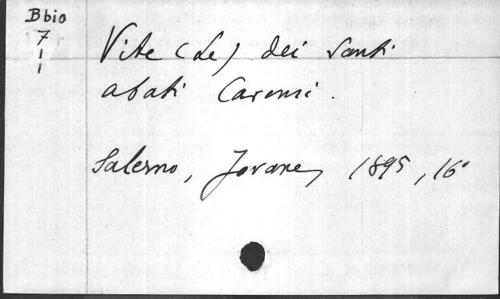 Bbio
7
1
1
Vite (Le) dei santi
abati Cavensi.
Salerno, Jovane, 1895, 16°